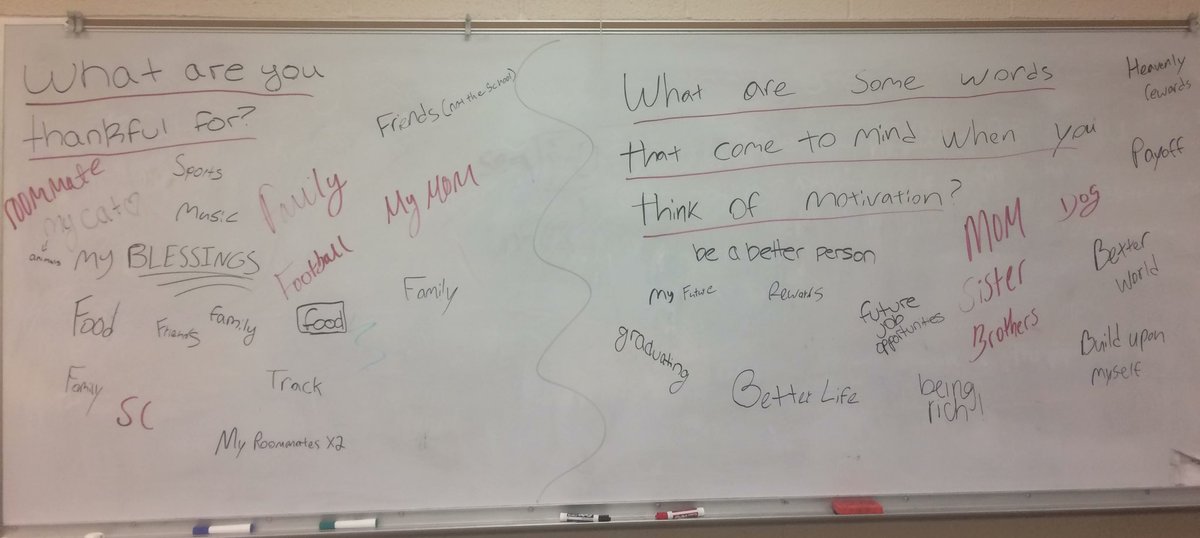 What are you
thankful for?
Friends (not the school)
roommate
my cat♡
animals
Sports
Music
Family
My MOM
My BLESSINGS
Football
Family
Food
Friends
family
food
Family
Track
SC
My Roommates X2
What are some words
that come to mind when you
think of motivation?
Heavenly
rewards
Payoff
be a better person
MOM
Dog
My Future
Rewards
future
job
opportunities
Sister
Brothers
Better
World
graduating
Better Life
being
rich!
Build upon
myself